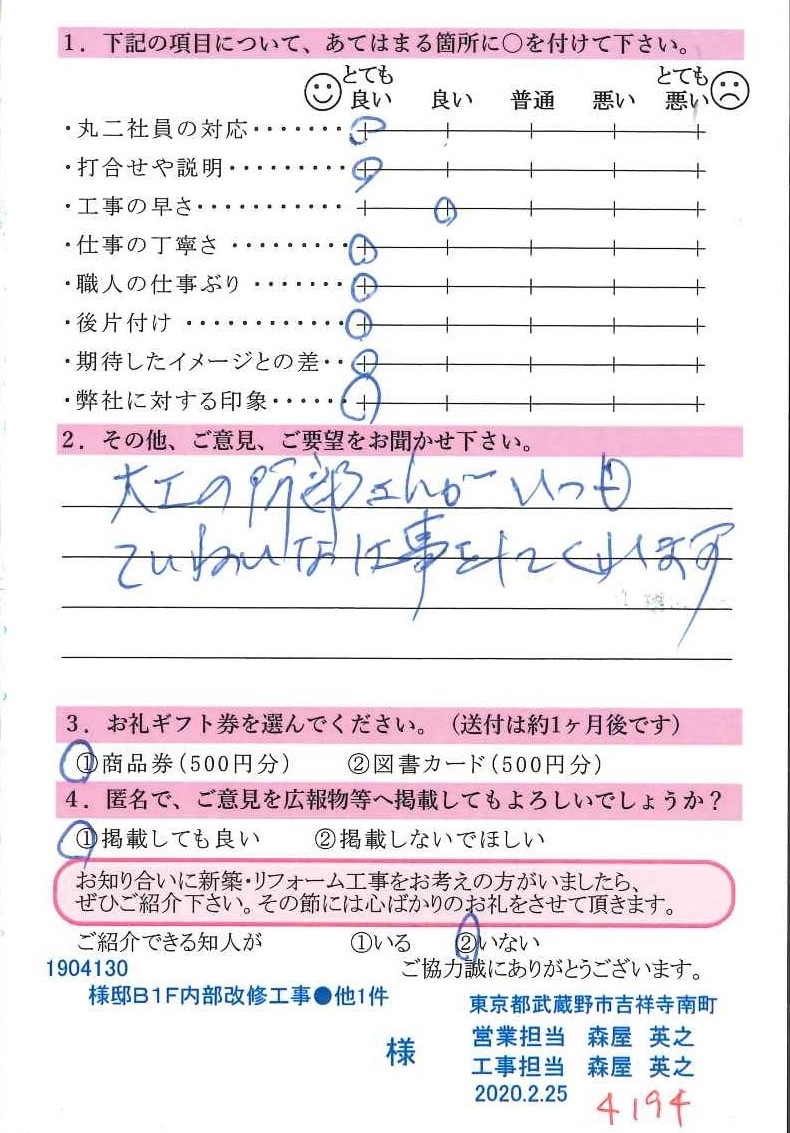 1．下記の項目について、あてはまる箇所に○を付けて下さい。
とても良い 良い 普通 悪い とても悪い
・丸二社員の対応・・・・・・・
・打合せや説明・・・・・・・・・
・工事の早さ・・・・・・・・・・・
・仕事の丁寧さ・・・・・・・・・
・職人の仕事ぶり・・・・・・・
・後片付け・・・・・・・・・・・・
・期待したイメージとの差・・
・弊社に対する印象・・・・・・
2．その他、ご意見、ご要望をお聞かせ下さい。
大工の阿部さんがいつも
ていねいな仕事をしてくれます
3．お礼ギフト券を選んでください。（送付は約1ヶ月後です）
①商品券（500円分） ②図書カード（500円分）
4．匿名で、ご意見を広報物等へ掲載してもよろしいでしょうか？
①掲載しても良い ②掲載しないでほしい
お知り合いに新築・リフォーム工事をお考えの方がいましたら、
ぜひご紹介下さい。その節には心ばかりのお礼をさせて頂きます。
ご紹介できる知人が ①いる ②いない
1904130 ご協力誠にありがとうございます。
様邸B1F内部改修工事●他1件
東京都武蔵野市吉祥寺南町
様
営業担当 森屋 英之
工事担当 森屋 英之
2020.2.25
4194